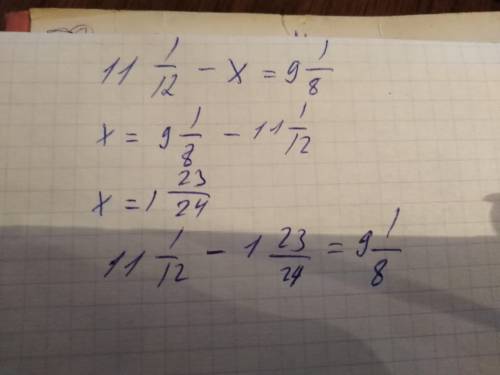 11 1/12 - x = 9 1/8
x = 9 1/8 - 11 1/12
x = 1 23/24
11 1/12 - 1 23/24 = 9 1/8